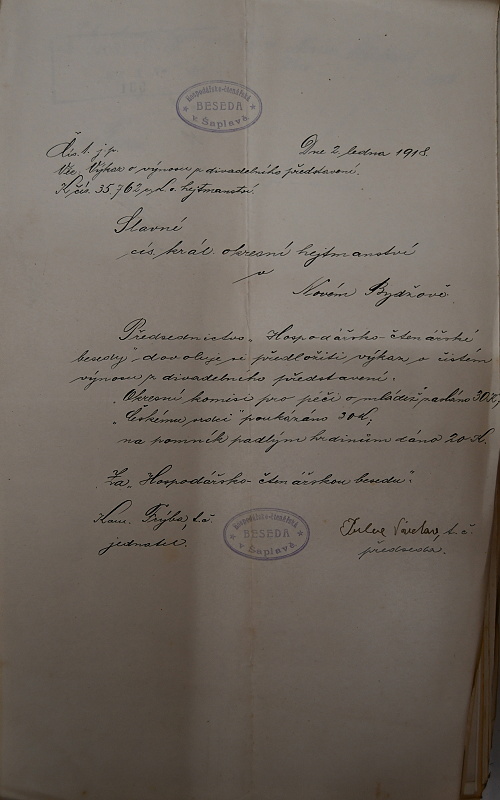 Hospodářsko-čtenářská
BESEDA
v Šaplavě
Čís. 1. j. p.
Dne 2. ledna 1918.
Věc. Výkaz o výnosu z divadelního představení.
K čís. 35.762 z. d. o. hejtmanství.
Slavné
cís. král. okresní hejtmanství
v
Novém Bydžově.
Předsednictvo „Hospodářsko-čtenářské
besedy“ dovoluje si předložiti výkaz o čistém
výnosu z divadelního představení.
„Okresní komisi pro péči o mládež“ zasláno 30 K,
„Českému srdci“ poukázáno 30 K,
na pomník padlým hrdinům dáno 20 K.
Za „Hospodářsko-čtenářskou besedu“.
Frýba t. č.
jednatel.
Hospodářsko-čtenářská
BESEDA
v Šaplavě
Václav, t. č.
předseda.